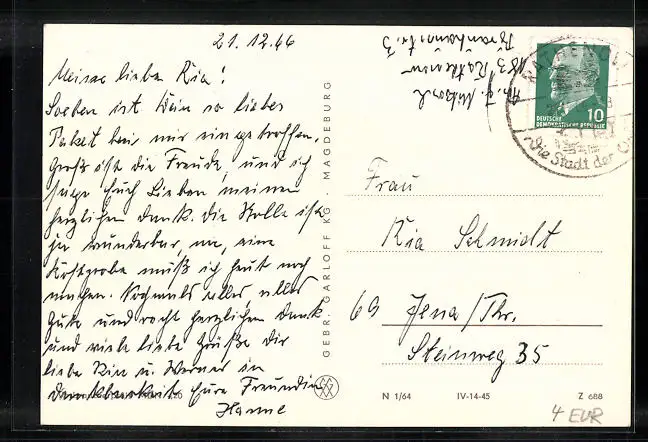 21.12.66
Meine liebe Ria!
Soeben ist Dein so liebes
Paket bei mir eingetroffen.
Groß ist die Freude, und ich
sage Euch Lieben meinen
herzlichen Dank. Die Stolle ist
ja wunderbar, na, eine
Kostprobe muß ich heut noch
machen. Nochmals alles, alles
Gute und recht herzlichen Dank
und viele liebe Grüße Dir
liebe Ria u. Werner in
Dankbarkeit Eure Freundin
Hanne
GEBR. GARLOFF KG, MAGDEBURG
183 Rathenow
RATHENOW
Die Stadt der
10
DEUTSCHE
DEMOKRATISCHE REPUBLIK
Frau
Ria Schmidt
69 Jena/Thr.
Steinweg 35
N 1/64 IV-14-45 Z 688
4 EUR